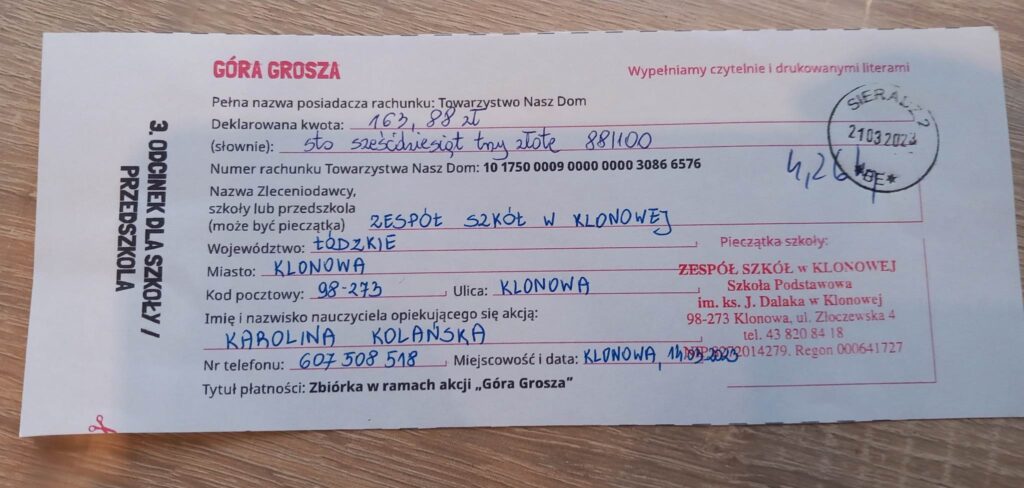 GÓRA GROSZA
Wypełniamy czytelnie i drukowanymi literami
Pełna nazwa posiadacza rachunku: Towarzystwo Nasz Dom
Deklarowana kwota: 163,88 zł
(słownie): sto sześćdziesiąt trzy złote 88/100
Numer rachunku Towarzystwa Nasz Dom: 10 1750 0009 0000 0000 3086 6576
Nazwa Zleceniodawcy,
szkoły lub przedszkola
(może być pieczątka) ZESPÓŁ SZKÓŁ W KLONOWEJ
Województwo: ŁÓDZKIE
Miasto: KLONOWA
Kod pocztowy: 98-273 Ulica: KLONOWA
Imię i nazwisko nauczyciela opiekującego się akcją:
KAROLINA KOLAŃSKA
Nr telefonu: 607 508 518 Miejscowość i data: KLONOWA, 03.2023
Tytuł płatności: Zbiórka w ramach akcji „Góra Grosza”
Pieczątka szkoły:
ZESPÓŁ SZKÓŁ w KLONOWEJ
Szkoła Podstawowa
im. ks. J. Dalaka w Klonowej
98-273 Klonowa, ul. Złoczewska 4
tel. 43 820 84 18
Regon 000641727
SIERADZ 2
21032023
*BE*
3. ODCINEK DLA SZKOŁY /
PRZEDSZKOLA